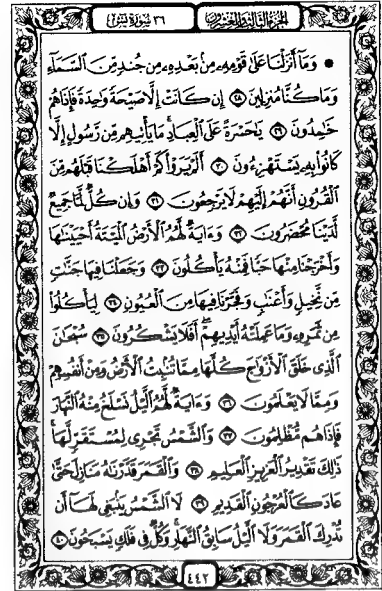 الجزء الثالث والعشرون
٣٦ سورة يس
۞ وَمَا أَنزَلْنَا عَلَىٰ قَوْمِهِۦ مِنۢ بَعْدِهِۦ مِن جُندٍ مِّنَ ٱلسَّمَآءِ
وَمَا كُنَّا مُنزِلِينَ ٢٨ إِن كَانَتْ إِلَّا صَيْحَةً وَٰحِدَةً فَإِذَا هُمْ
خَٰمِدُونَ ٢٩ يَٰحَسْرَةً عَلَى ٱلْعِبَادِ مَا يَأْتِيهِم مِّن رَّسُولٍ إِلَّا
كَانُوا۟ بِهِۦ يَسْتَهْزِءُونَ ٣٠ أَلَمْ يَرَوْا۟ كَمْ أَهْلَكْنَا قَبْلَهُم مِّنَ
ٱلْقُرُونِ أَنَّهُمْ إِلَيْهِمْ لَا يَرْجِعُونَ ٣١ وَإِن كُلٌّ لَّمَّا جَمِيعٌ
لَّدَيْنَا مُحْضَرُونَ ٣٢ وَءَايَةٌ لَّهُمُ ٱلْأَرْضُ ٱلْمَيْتَةُ أَحْيَيْنَٰهَا
وَأَخْرَجْنَا مِنْهَا حَبًّا فَمِنْهُ يَأْكُلُونَ ٣٣ وَجَعَلْنَا فِيهَا جَنَّٰتٍ
مِّن نَّخِيلٍ وَأَعْنَٰبٍ وَفَجَّرْنَا فِيهَا مِنَ ٱلْعُيُونِ ٣٤ لِيَأْكُلُوا۟
مِن ثَمَرِهِۦ وَمَا عَمِلَتْهُ أَيْدِيهِمْ أَفَلَا يَشْكُرُونَ ٣٥ سُبْحَٰنَ
ٱلَّذِى خَلَقَ ٱلْأَزْوَٰجَ كُلَّهَا مِمَّا تُنۢبِتُ ٱلْأَرْضُ وَمِنْ أَنفُسِهِمْ
وَمِمَّا لَا يَعْلَمُونَ ٣٦ وَءَايَةٌ لَّهُمُ ٱلَّيْلُ نَسْلَخُ مِنْهُ ٱلنَّهَارَ
فَإِذَا هُم مُّظْلِمُونَ ٣٧ وَٱلشَّمْسُ تَجْرِى لِمُسْتَقَرٍّ لَّهَا
ذَٰلِكَ تَقْدِيرُ ٱلْعَزِيزِ ٱلْعَلِيمِ ٣٨ وَٱلْقَمَرَ قَدَّرْنَٰهُ مَنَازِلَ حَتَّىٰ
عَادَ كَٱلْعُرْجُونِ ٱلْقَدِيمِ ٣٩ لَا ٱلشَّمْسُ يَنۢبَغِى لَهَآ أَن
تُدْرِكَ ٱلْقَمَرَ وَلَا ٱلَّيْلُ سَابِقُ ٱلنَّهَارِ وَكُلٌّ فِى فَلَكٍ يَسْبَحُونَ ٤٠
٤٤٢